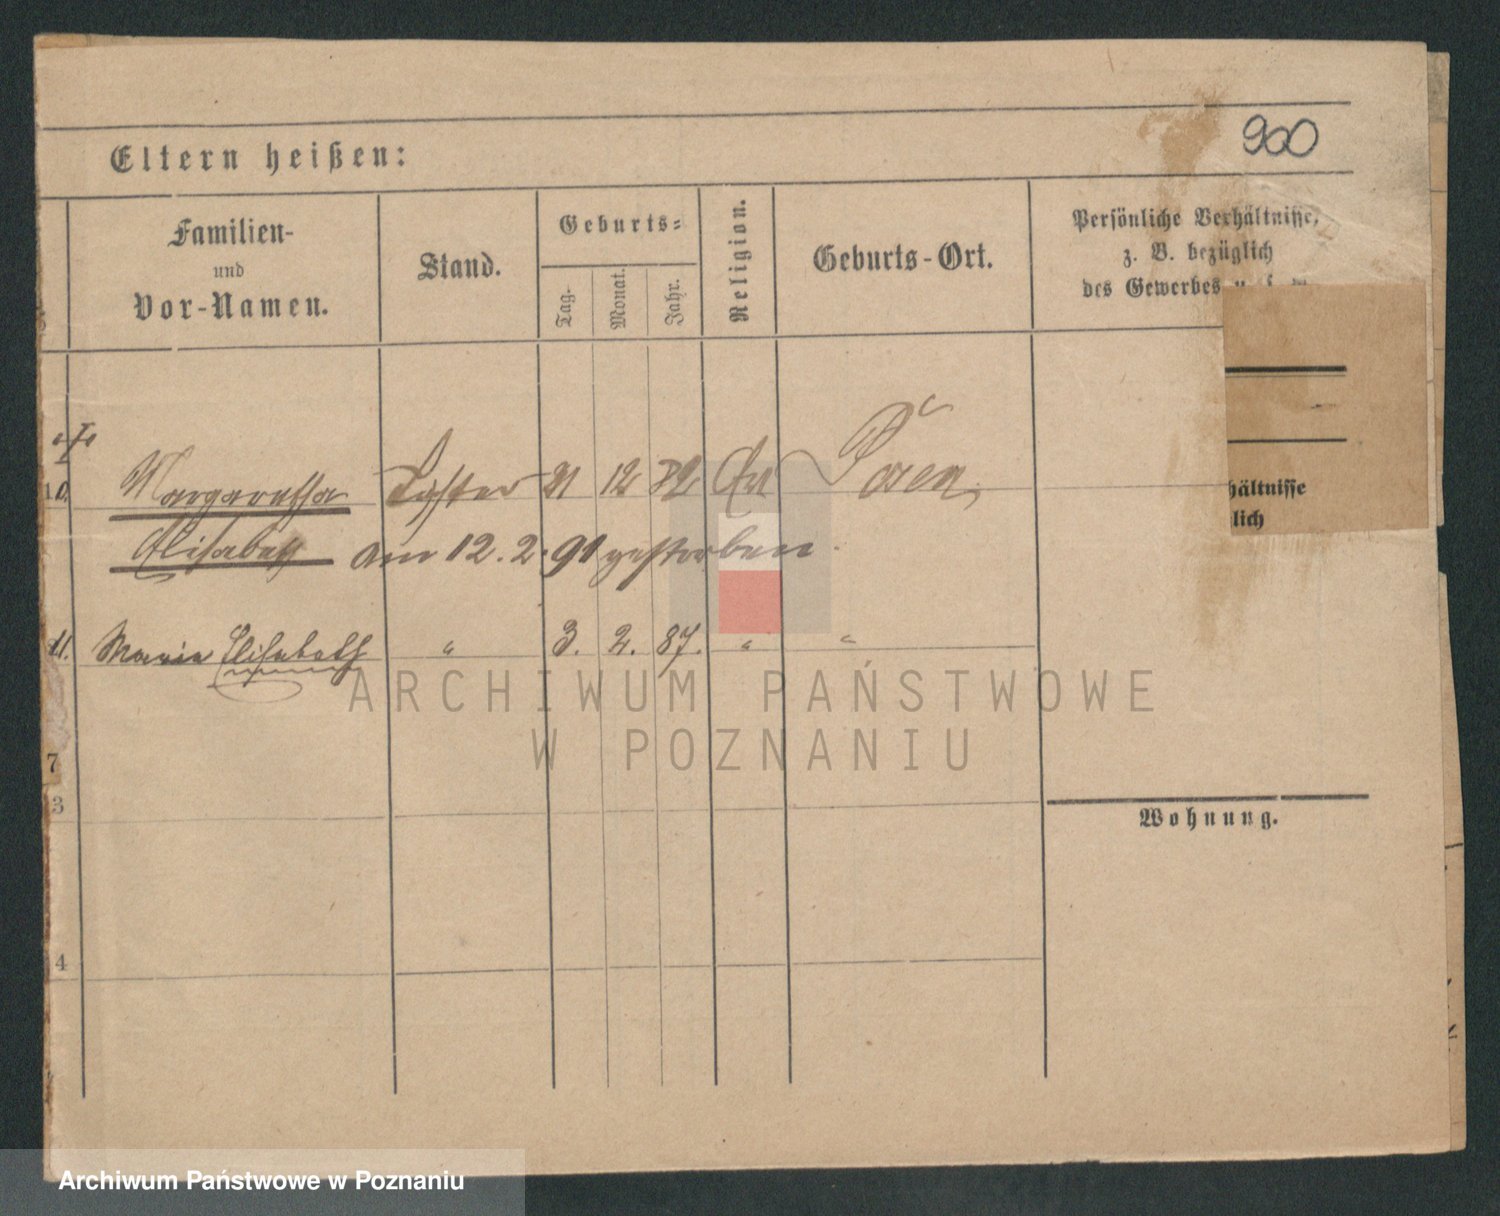 900
Eltern heißen:
Familien-
und
Vor-Namen.
Stand.
Geburts-
Tag.
Monat.
Jahr.
Religion.
Geburts-Ort.
Persönliche Verhältnisse,
z. B. bezüglich
des Gewerbes u. s. w.
hältnisse
lich
10. Margaretha Tochter 21 12 Ev Posen
Elisabeth am 12. 2. 91 gestorben.
11. Marie Elisabeth " 3. 2. 87. " "
ARCHIWUM PAŃSTWOWE
W POZNANIU
7
3
Wohnung.
4
Archiwum Państwowe w Poznaniu